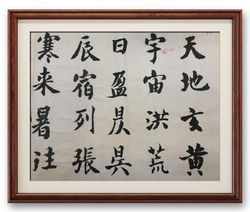 天地玄黃
宇宙洪荒
日盈昃
辰宿列張
寒来暑往